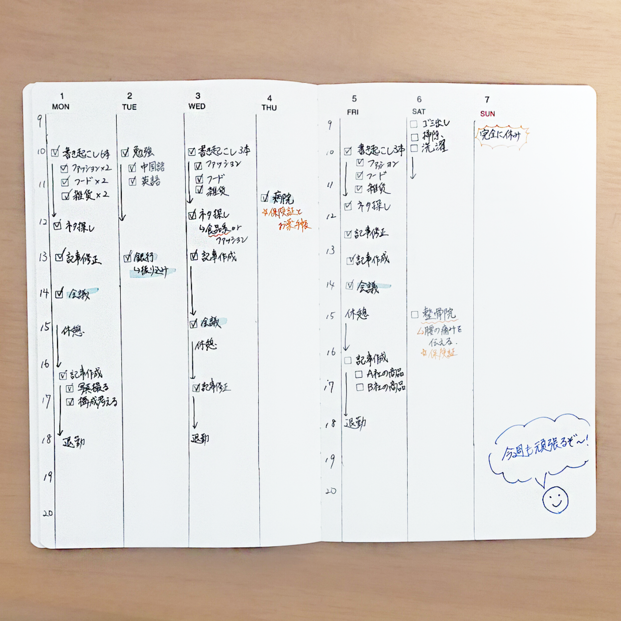 1
MON
9
10
☑ 書き起こし6本
☑ ファッション×2
11
☑ フード×2
☑ 雑貨×2
12
☑ ネタ探し
13
☑ 記事修正
14
☑ 会議
15
休憩
16
☑ 記事作成
☑ 写真撮る
17
☑ 構成考える
18
退勤
19
20
2
TUE
☑ 勉強
☑ 中国語
☑ 英語
☑ 銀行
↳振り込み
3
WED
☑ 書き起こし3本
☑ ファッション
☑ フード
☑ 雑貨
☑ ネタ探し
↳食品系or
ファッション
☑ 記事作成
☑ 会議
休憩
☑ 記事修正
退勤
4
THU
☑ 病院
☆保険証と
お薬手帳
5
FRI
9
10
☑ 書き起こし3本
☑ ファッション
11
☑ フード
☑ 雑貨
☑ ネタ探し
12
☑ 記事修正
13
☑ 記事作成
14
☑ 会議
15
休憩
16
☐ 記事作成
☐ A社の商品
17
☐ B社の商品
18
退勤
19
20
6
SAT
☐ ゴミ出し
☐ 掃除
☐ 洗濯
☐ 整骨院
↳腰の痛みを
伝える
☆保険証
7
SUN
完全に休み
今週も頑張るぞ〜!